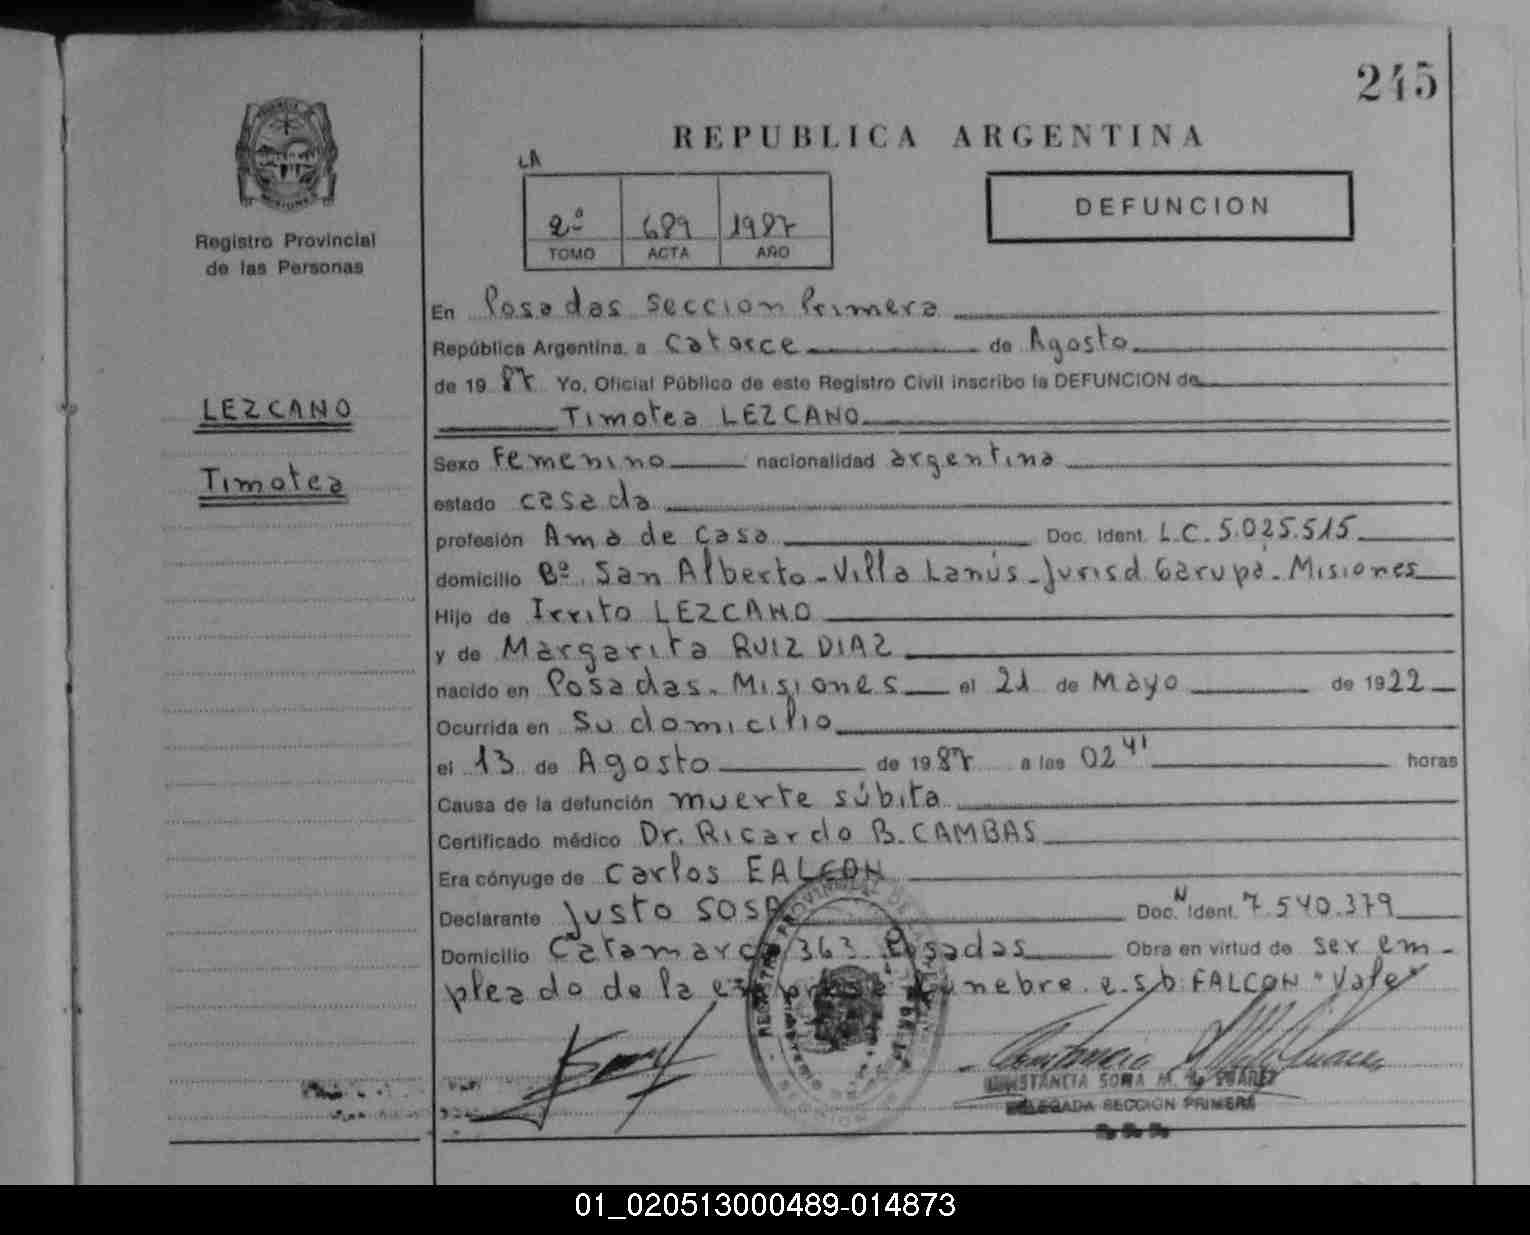 245
REPUBLICA ARGENTINA
LA
2º 689 1987
TOMO ACTA AÑO
DEFUNCION
Registro Provincial
de las Personas
LEZCANO
Timotea
En Posadas Seccion Primera
República Argentina, a Catorce de Agosto
de 19 87 Yo, Oficial Público de este Registro Civil inscribo la DEFUNCION de
Timotea LEZCANO
Sexo Femenino nacionalidad argentina
estado casada
profesión Ama de Casa Doc. Ident. L.C. 5.025.515
domicilio Bº. San Alberto - Villa Lanús - Jurisd. Garupá - Misiones
Hijo de Irrito LEZCANO
y de Margarita RUIZ DIAZ
nacido en Posadas - Misiones el 21 de Mayo de 1922
Ocurrida en Su domicilio
el 13 de Agosto de 1987 a las 02 41 horas
Causa de la defunción muerte súbita
Certificado médico Dr. Ricardo B. CAMBAS
Era cónyuge de Carlos FALCON
Declarante Justo SOSA Doc. N Ident. 7.540.379
Domicilio Catamarca 363 Posadas Obra en virtud de ser em-
pleado de la empresa fúnebre. e.s.b: FALCON "Vale"
CONSTANCIA SONIA M. de SUAREZ
DELEGADA SECCION PRIMERA
01_020513000489-014873